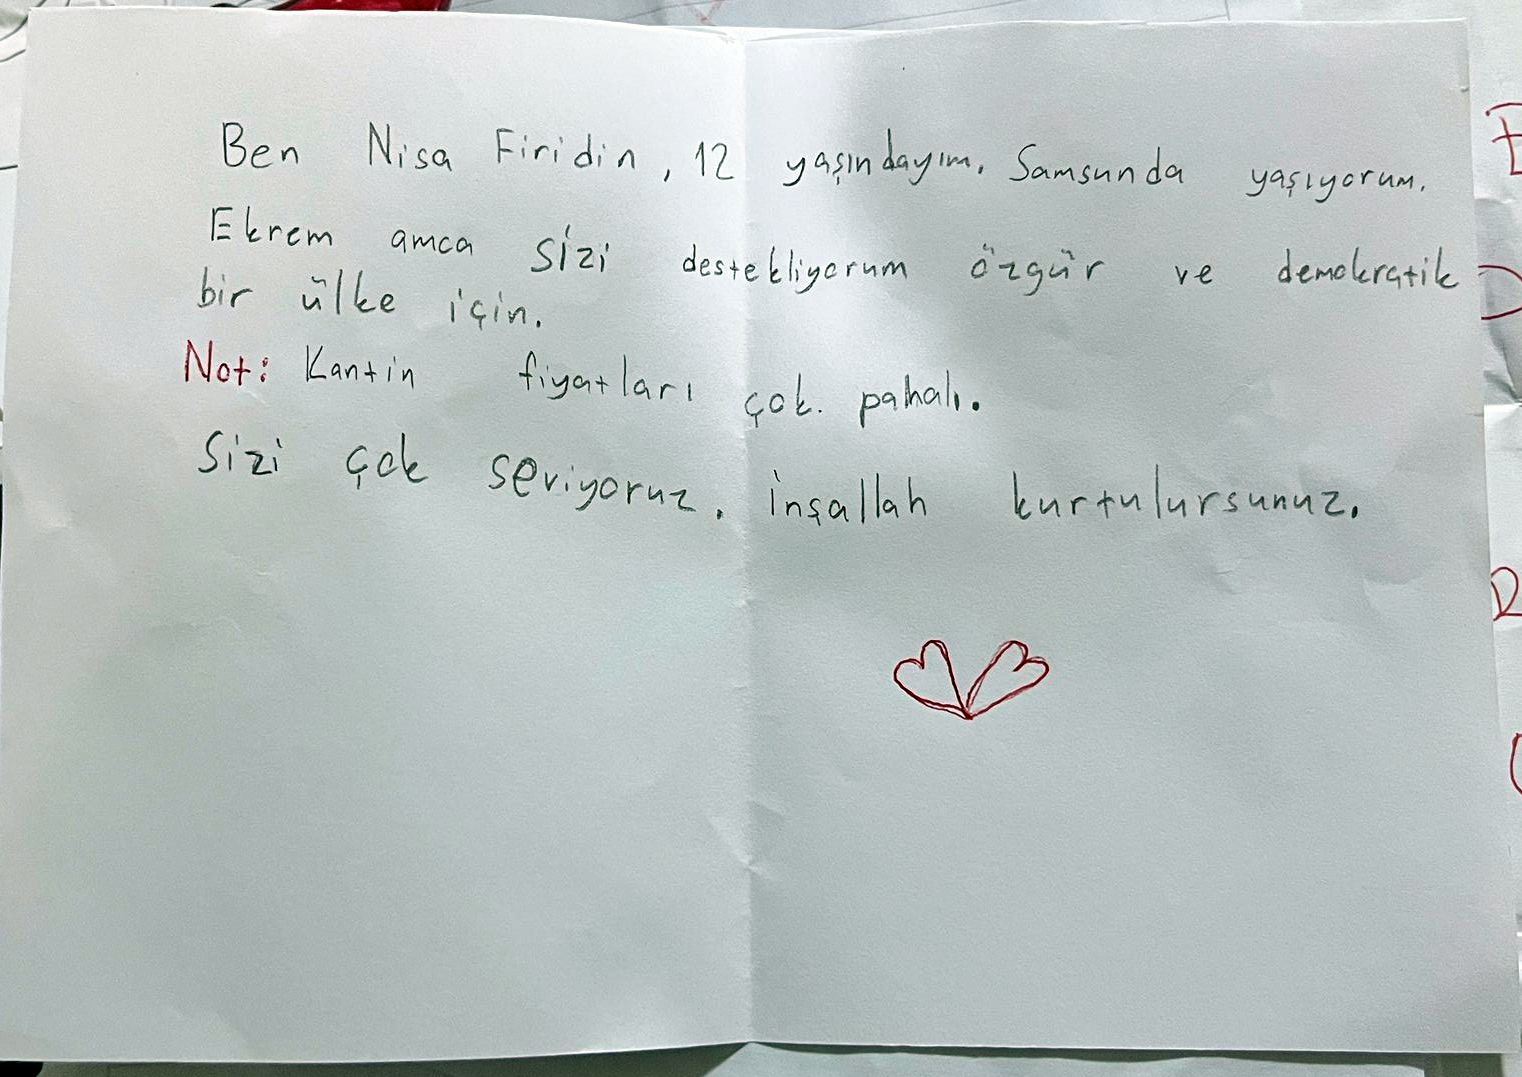 Ben Nisa Firidin, 12 yaşındayım. Samsunda yaşıyorum.
Ekrem amca sizi destekliyorum özgür ve demokratik
bir ülke için.
Not: Kantin fiyatları çok. pahalı.
Sizi çok seviyoruz. inşallah kurtulursunuz.